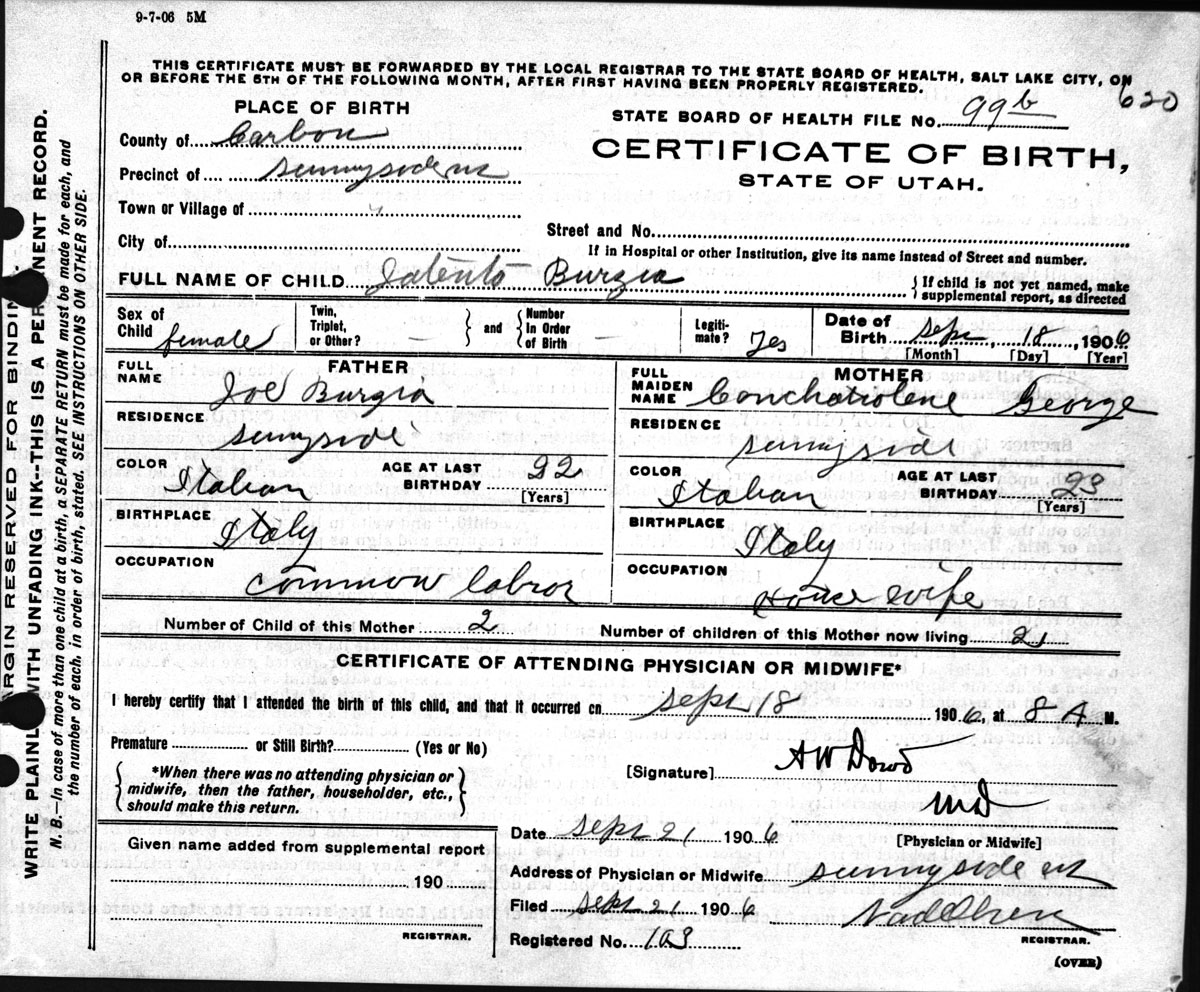 9-7-06 5M
THIS CERTIFICATE MUST BE FORWARDED BY THE LOCAL REGISTRAR TO THE STATE BOARD OF HEALTH, SALT LAKE CITY, ON
OR BEFORE THE 5TH OF THE FOLLOWING MONTH, AFTER FIRST HAVING BEEN PROPERLY REGISTERED.
620
PLACE OF BIRTH
STATE BOARD OF HEALTH FILE NO. 99b
County of Carbon
CERTIFICATE OF BIRTH,
STATE OF UTAH.
Precinct of Sunnyside
Town or Village of
City of
Street and No.
If in Hospital or other Institution, give its name instead of Street and number.
FULL NAME OF CHILD Burgia
If child is not yet named, make
supplemental report, as directed
Sex of
Child female
Twin,
Triplet,
or Other? —
and
Number
In Order
of Birth —
Legiti-
mate? Yes
Date of
Birth Sep 18, 1906
[Month] [Day] [Year]
FATHER
FULL
NAME Joe Burgia
RESIDENCE
Sunnyside
COLOR
Italian
AGE AT LAST
BIRTHDAY 22
[Years]
BIRTHPLACE
Italy
OCCUPATION
Common labror
MOTHER
FULL
MAIDEN
NAME George
RESIDENCE
Sunnyside
COLOR
Italian
AGE AT LAST
BIRTHDAY 23
[Years]
BIRTHPLACE
Italy
OCCUPATION
House wife
Number of Child of this Mother 2 Number of children of this Mother now living 2
CERTIFICATE OF ATTENDING PHYSICIAN OR MIDWIFE*
I hereby certify that I attended the birth of this child, and that it occurred on Sept 18 1906, at 8 A M.
Premature or Still Birth? (Yes or No)
*When there was no attending physician or
midwife, then the father, householder, etc.,
should make this return.
[Signature] A W Dowd
MD
[Physician or Midwife]
Given name added from supplemental report
190
REGISTRAR.
Date Sept 21 1906
Address of Physician or Midwife Sunnyside
Filed Sept 21 1906
REGISTRAR.
Registered No. 103
(OVER)
MARGIN RESERVED FOR BINDING.
WRITE PLAINLY WITH UNFADING INK--THIS IS A PERMANENT RECORD.
N. B.—In case of more than one child at a birth, a SEPARATE RETURN must be made for each, and
the number of each, in order of birth, stated. SEE INSTRUCTIONS ON OTHER SIDE.